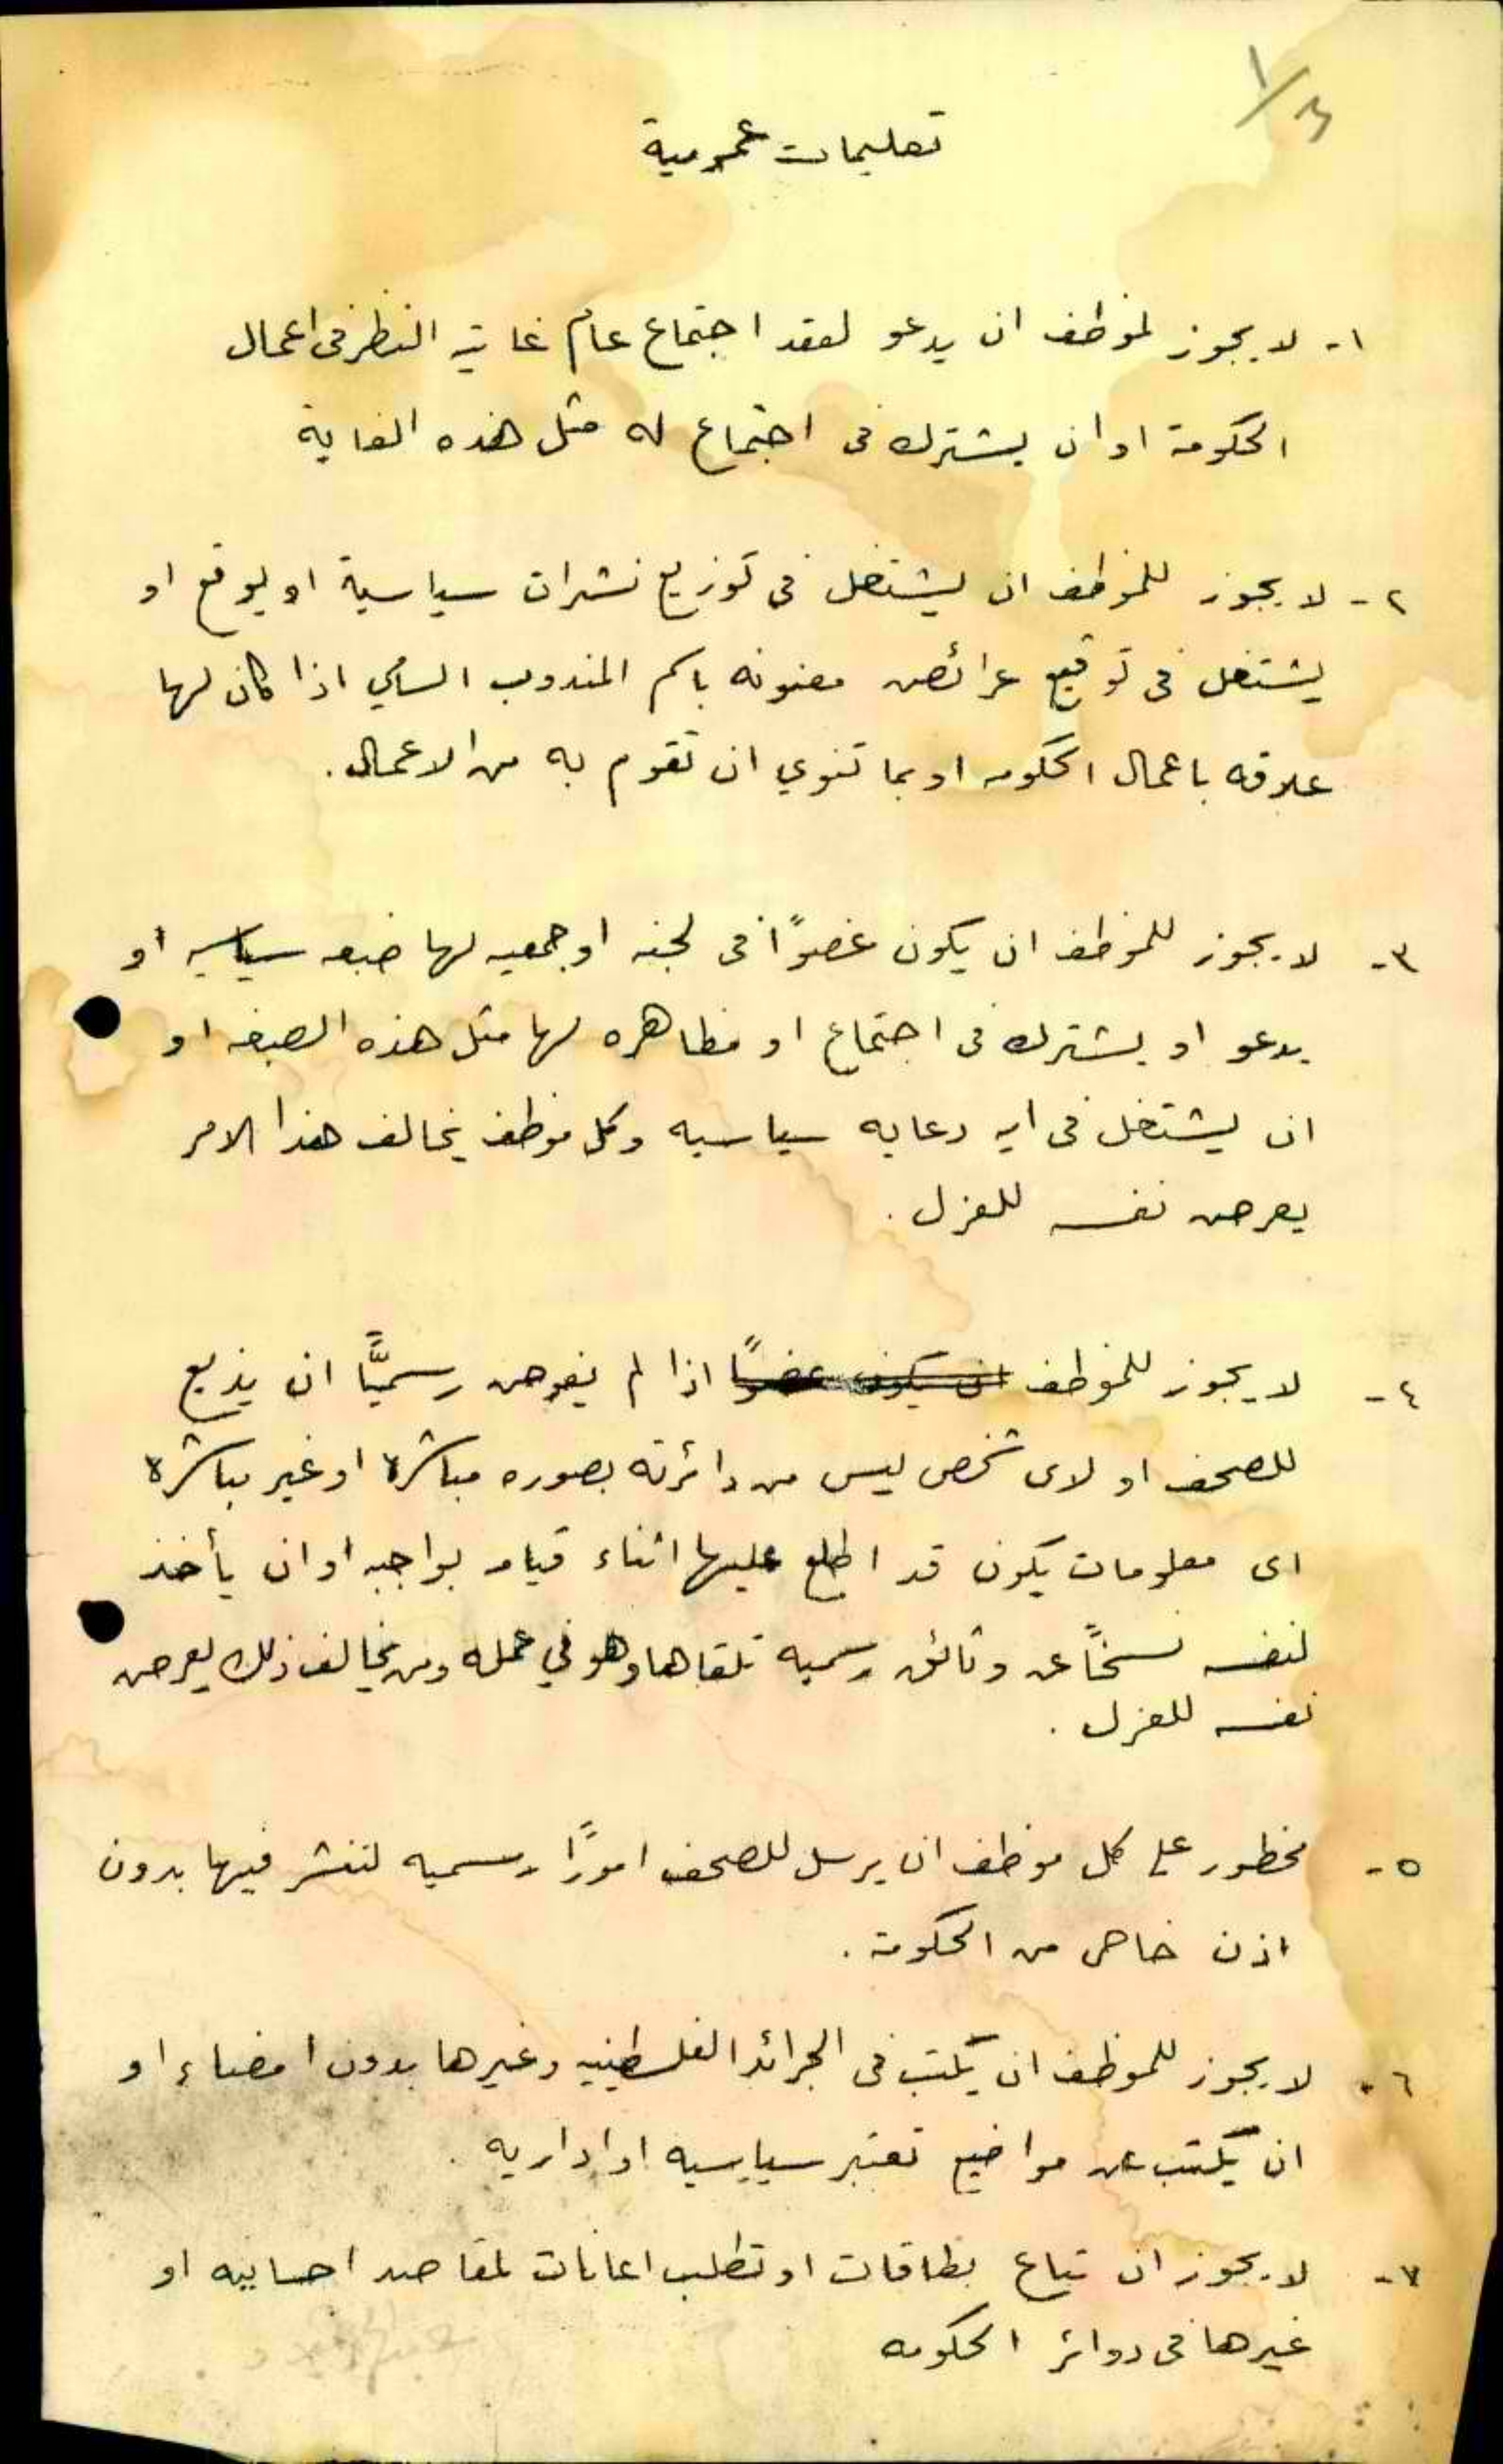 ١/٣
تعليمات عمومية
١- لا يجوز لموظف ان يدعو لعقد اجتماع عام غايته النظر فى اعمال
الحكومة او ان يشترك فى اجتماع له مثل هذه الغاية
٢- لا يجوز للموظف ان يشتغل فى توزيع نشرات سياسية او يوقع او
يشتغل فى توقيع عرائض معنونه باسم المندوب السامي اذا كان لها
علاقه باعمال الحكومه او بما تنوي ان تقوم به من الاعمال.
٣- لا يجوز للموظف ان يكون عضوًا فى لجنه او جمعيه لها صبغه سياسيه او
يدعو او يشترك فى اجتماع او مظاهره لها مثل هذه الصبغه او
ان يشتغل فى ايه دعايه سياسيه وكل موظف يخالف هذا الامر
يعرض نفسه للعزل.
٤- لا يجوز للموظف ان يكون عضوًا اذا لم يفوض رسميًّا ان يذيع
للصحف او لاى شخص ليس من دائرته بصوره مباشرة او غير مباشرة
اى معلومات يكون قد اطلع عليها اثناء قيامه بواجبه او ان يأخذ
لنفسه نسخًا عن وثائق رسميه تلقاها وهو في عمله ومن يخالف ذلك يعرض
نفسه للعزل.
٥- محظور على كل موظف ان يرسل للصحف امورًا رسميه لتنشر فيها بدون
اذن خاص من الحكومة.
٦- لا يجوز للموظف ان يكتب فى الجرائد الفلسطينيه وغيرها بدون امضاء او
ان يكتب عن مواضيع تعتبر سياسيه او اداريه.
٧- لا يجوز ان تباع بطاقات او تطلب اعانات لمقاصد احسانيه او
غيرها فى دوائر الحكومه